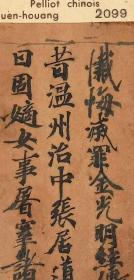 Pelliot chinois
uen-houang 2099
懺悔滅罪金光明經
昔温州治中張居道
日因嫡女事屠宰諸